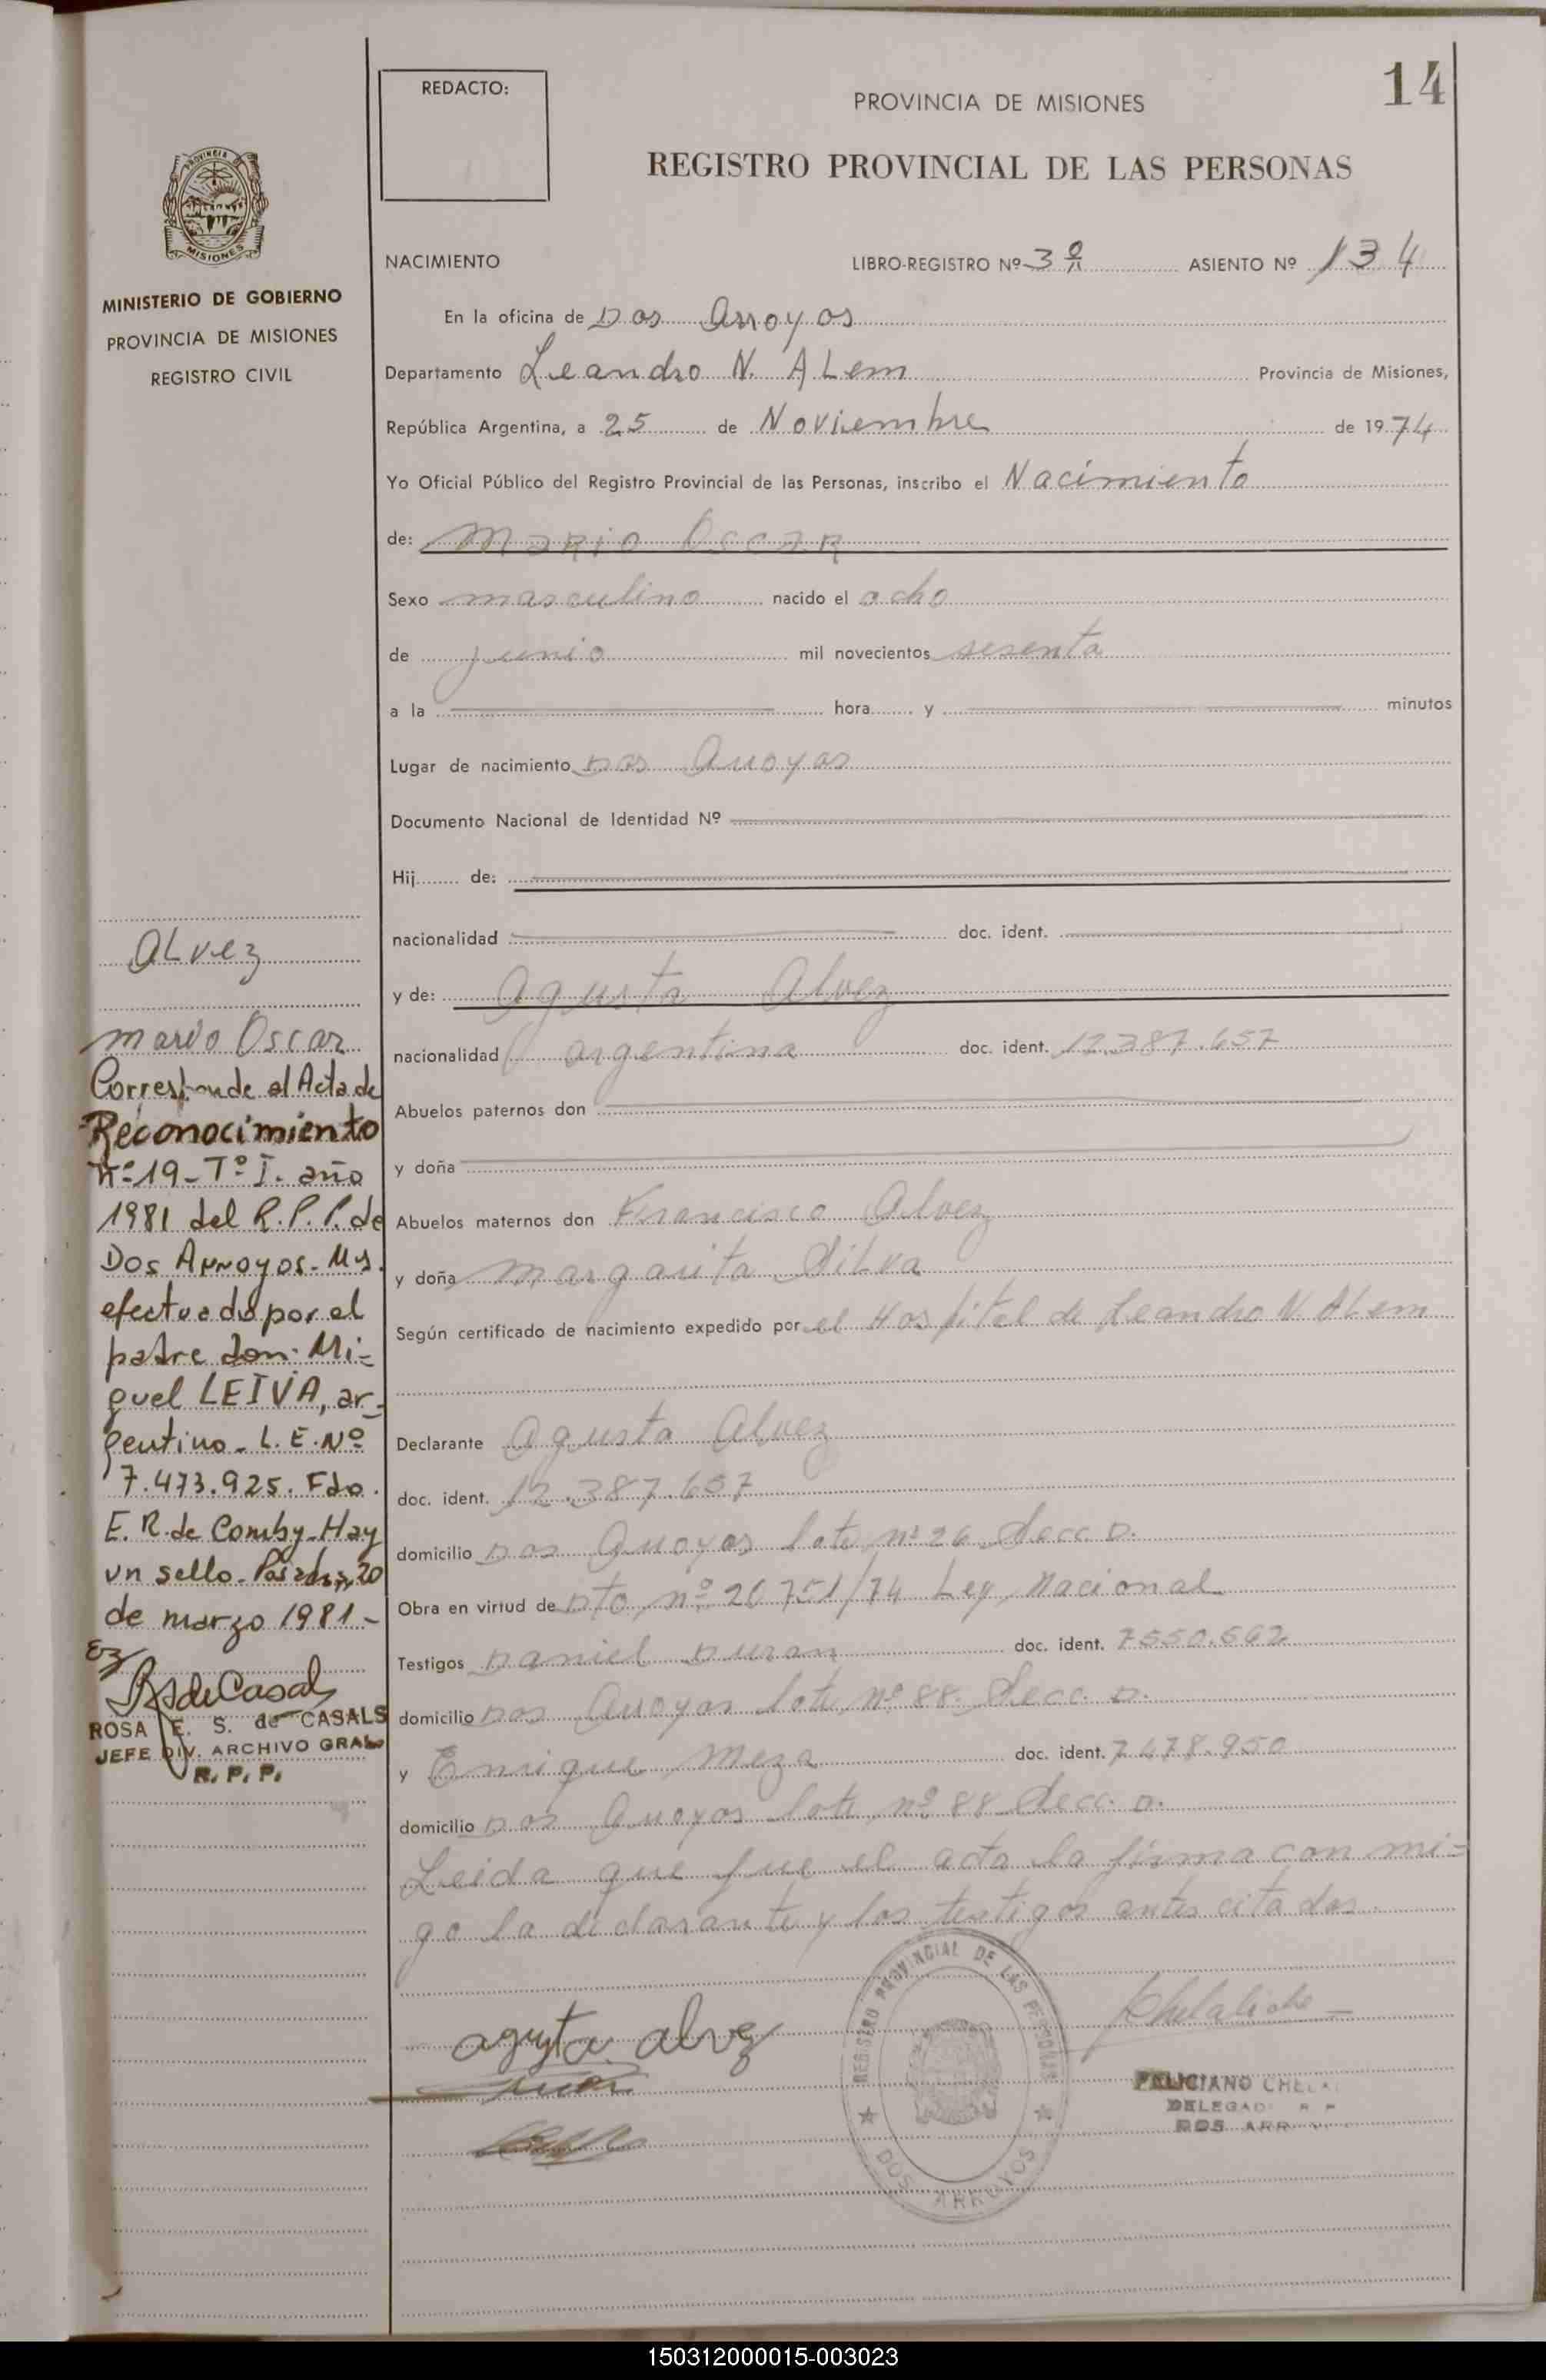 14
REDACTO:
PROVINCIA DE MISIONES
REGISTRO PROVINCIAL DE LAS PERSONAS
PROVINCIA
MISIONES
MINISTERIO DE GOBIERNO
PROVINCIA DE MISIONES
REGISTRO CIVIL
NACIMIENTO LIBRO-REGISTRO Nº 3º ASIENTO Nº 134
En la oficina de Dos Arroyos
Departamento Leandro N. ALem Provincia de Misiones,
República Argentina, a 25 de Noviembre de 1974
Yo Oficial Público del Registro Provincial de las Personas, inscribo el Nacimiento
de: Mario Oscar
Sexo masculino nacido el ocho
de junio mil novecientos sesenta
a la hora y minutos
Lugar de nacimiento Dos Arroyos
Documento Nacional de Identidad Nº
Hij de:
nacionalidad doc. ident.
y de: Agusta Alvez
nacionalidad argentina doc. ident. 12.387.657
Abuelos paternos don
y doña
Abuelos maternos don Francisco Alvez
y doña Margarita Silva
Según certificado de nacimiento expedido por el Hospital de Leandro N. ALem
Declarante Agusta Alvez
doc. ident. 12.387.657
domicilio Dos Arroyos lote nº 26 Secc. D.
Obra en virtud de Dto, nº 20751/74 Ley Nacional
Testigos Daniel Duran doc. ident. 7550.662
domicilio Dos Arroyos lote nº 88. Secc. D.
y Enrique Meza doc. ident. 7.478.950
domicilio Dos Arroyos lote nº 88 Secc. D.
Leida que fue el acta la firma con mi=
go la declarante y los testigos antes citados.
agusta alvez
REGISTRO PROVINCIAL DE LAS PERSONAS
DOS ARROYOS
FELICIANO
DELEGAD
DOS ARR
ALvez
Mario Oscar
Corresponde al Acta de
Reconocimiento
Nº 19 - Tº I. año
1981 del R.P.P. de
Dos Arroyos - Ms.
efectuado por el
padre don: Mi=
guel LEIVA, ar=
gentino - L.E. Nº
7.473.925. Fdo.
E. R. de Comby - Hay
un sello. Posadas, 20
de marzo 1981 -
RSdeCasals
ROSA E. S. de CASALS
JEFE DIV. ARCHIVO GRAL
R. P. P.
150312000015-003023